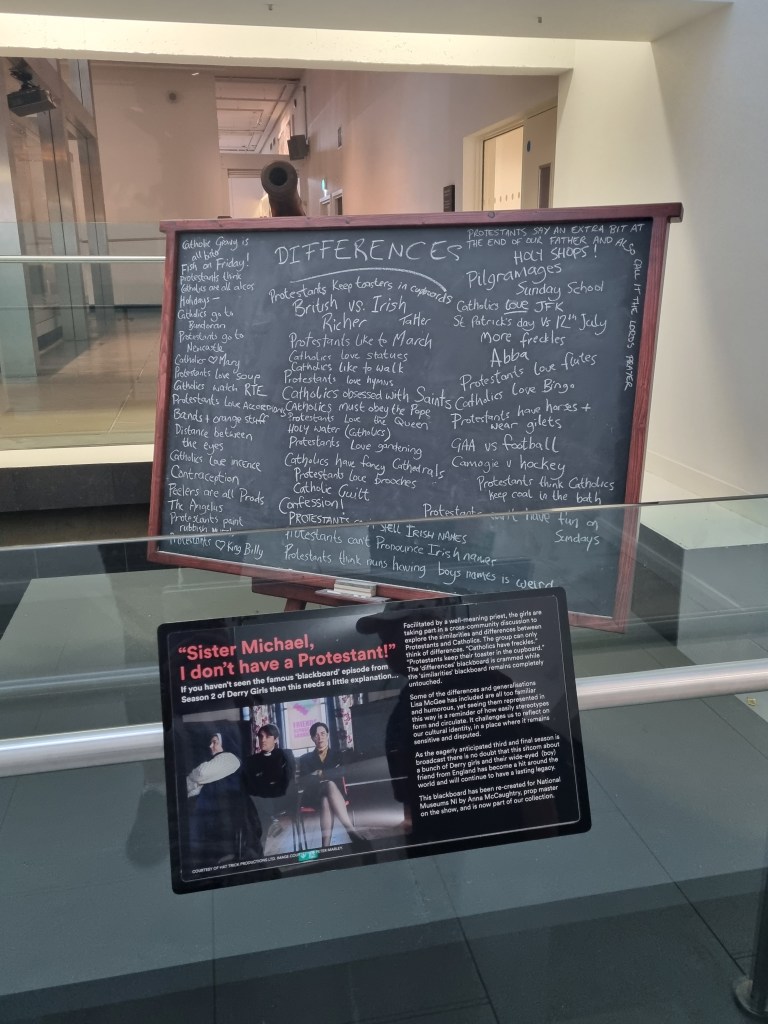 DIFFERENCES
Catholic Gravy is
all bisto
Fish on Friday!
Protestants think
Catholics are all alcos
Holidays -
Catholics go to
Bundoran
Protestants go to
Newcastle
Catholics ♡ Mary
Protestants love "soup
Catholics watch RTE
Protestants Love Accordions
Bands + orange stuff
Distance between
the eyes
Catholics love incence
Contraception
Peelers are all Prods
The Angelus
Protestants paint
rubbish
♡ King Billy
Protestants keep toasters in cupboards
British vs. Irish
Richer Taller
Protestants like to March
Catholics love statues
Catholics like to walk
Protestants love hymns
Catholics obsessed with Saints
Catholics must obey the Pope
Protestants love the Queen
Holy water (Catholics)
Protestants Love gardening
Catholics have fancy Cathedrals
Protestants love brooches
Catholic Guilt
Confession!
PROTESTANTS SPELL IRISH NAMES
Protestants cant Pronounce Irish names
Protestants think nuns having boys names is weird
PROTESTANTS SAY AN EXTRA BIT AT
THE END OF OUR FATHER AND ALSO CALL IT THE LORD'S PRAYER
HOLY SHOPS!
Pilgramages
Sunday School
Catholics love JFK
St Patrick's day vs 12th July
More freckles
Abba
Protestants love flutes
Catholics love Bingo
Protestants have horses +
wear gilets
GAA vs football
Camogie v hockey
Protestants think Catholics
keep coal in the bath
Protestants can't have fun on
Sundays
"Sister Michael,
I don't have a Protestant!"
If you haven't seen the famous 'blackboard' episode from
Season 2 of Derry Girls then this needs a little explanation...
COURTESY OF HAT TRICK PRODUCTIONS LTD. IMAGE PETER MARLEY
Facilitated by a well-meaning priest, the girls are
taking part in a cross-community discussion to
explore the similarities and differences between
Protestants and Catholics. The group can only
think of differences. "Catholics have freckles."
"Protestants keep their toaster in the cupboard."
The 'differences' blackboard is crammed while
the 'similarities' blackboard remains completely
untouched.
Some of the differences and generalisations
Lisa McGee has included are all too familiar
and humorous, yet seeing them represented in
this way is a reminder of how easily stereotypes
form and circulate. It challenges us to reflect on
our cultural identity, in a place where it remains
sensitive and disputed.
As the eagerly anticipated third and final season is
broadcast there is no doubt that this sitcom about
a bunch of Derry girls and their wide-eyed (boy)
friend from England has become a hit around the
world and will continue to have a lasting legacy.
This blackboard has been re-created for National
Museums NI by Anna McCaughtry, prop master
on the show, and is now part of our collection.